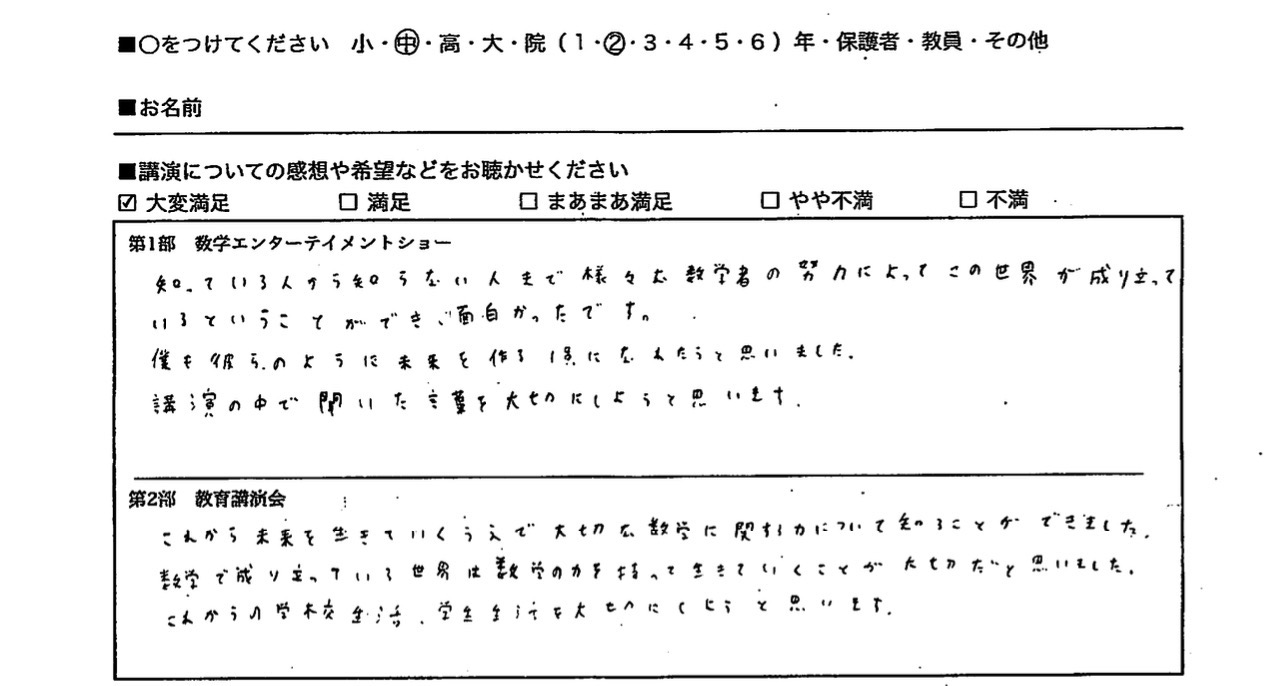 ■○をつけてください 小・㊥・高・大・院（1・②・3・4・5・6）年・保護者・教員・その他
■お名前
■講演についての感想や希望などをお聴かせください
☑ 大変満足 □ 満足 □ まあまあ満足 □ やや不満 □ 不満
第1部 数学エンターテイメントショー
知っている人から知らない人まで様々な数学者の努力によってこの世界が成り立って
いるということができ面白かったです。
僕も彼らのように未来を作る 員になれたらと思いました。
講演の中で聞いた言葉を大切にしようと思います。
第2部 教育講演会
これから未来を生きていくうえで大切な数学に関する力について知ることができました。
数学で成り立っている世界は数学の力を持って生きていくことが大切だと思いました。
これからの学校生活、学生生活を大切にしようと思います。